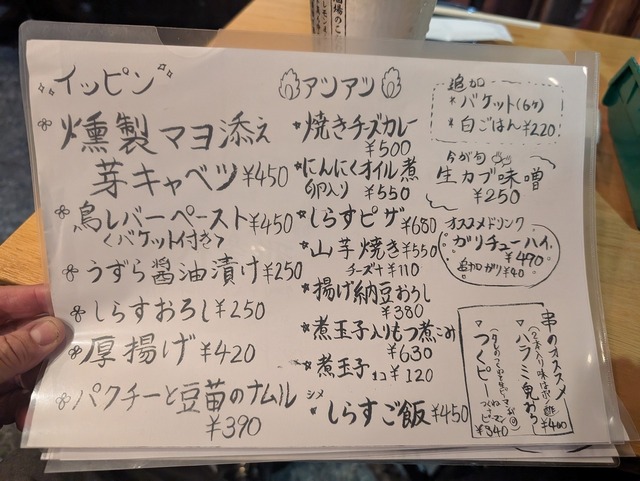 イッピン
燻製マヨ添え
芽キャベツ ¥450
鳥レバーペースト ¥450
<バケット付き>
うずら醤油漬け ¥250
しらすおろし ¥250
厚揚げ ¥420
パクチーと豆苗のナムル
¥390
アツアツ
焼きチーズカレー
¥500
にんにくオイル煮
卵入り ¥550
しらすピザ ¥680
山芋焼き ¥550
チーズ+ ¥110
揚げ納豆おろし
¥380
煮玉子入りもつ煮こみ
¥630
煮玉子 1コ ¥120
シメ
しらすご飯 ¥450
追加
*バケット(6ヶ)
*白ごはん ¥220!
今が旬
生カブ味噌
¥250
オススメドリンク
ガリチューハイ
¥470
追加ガリ ¥40
串のオススメ
▽ハラミ鬼おろ
¥400
▽つくピー
つくね
ピーマン
¥340